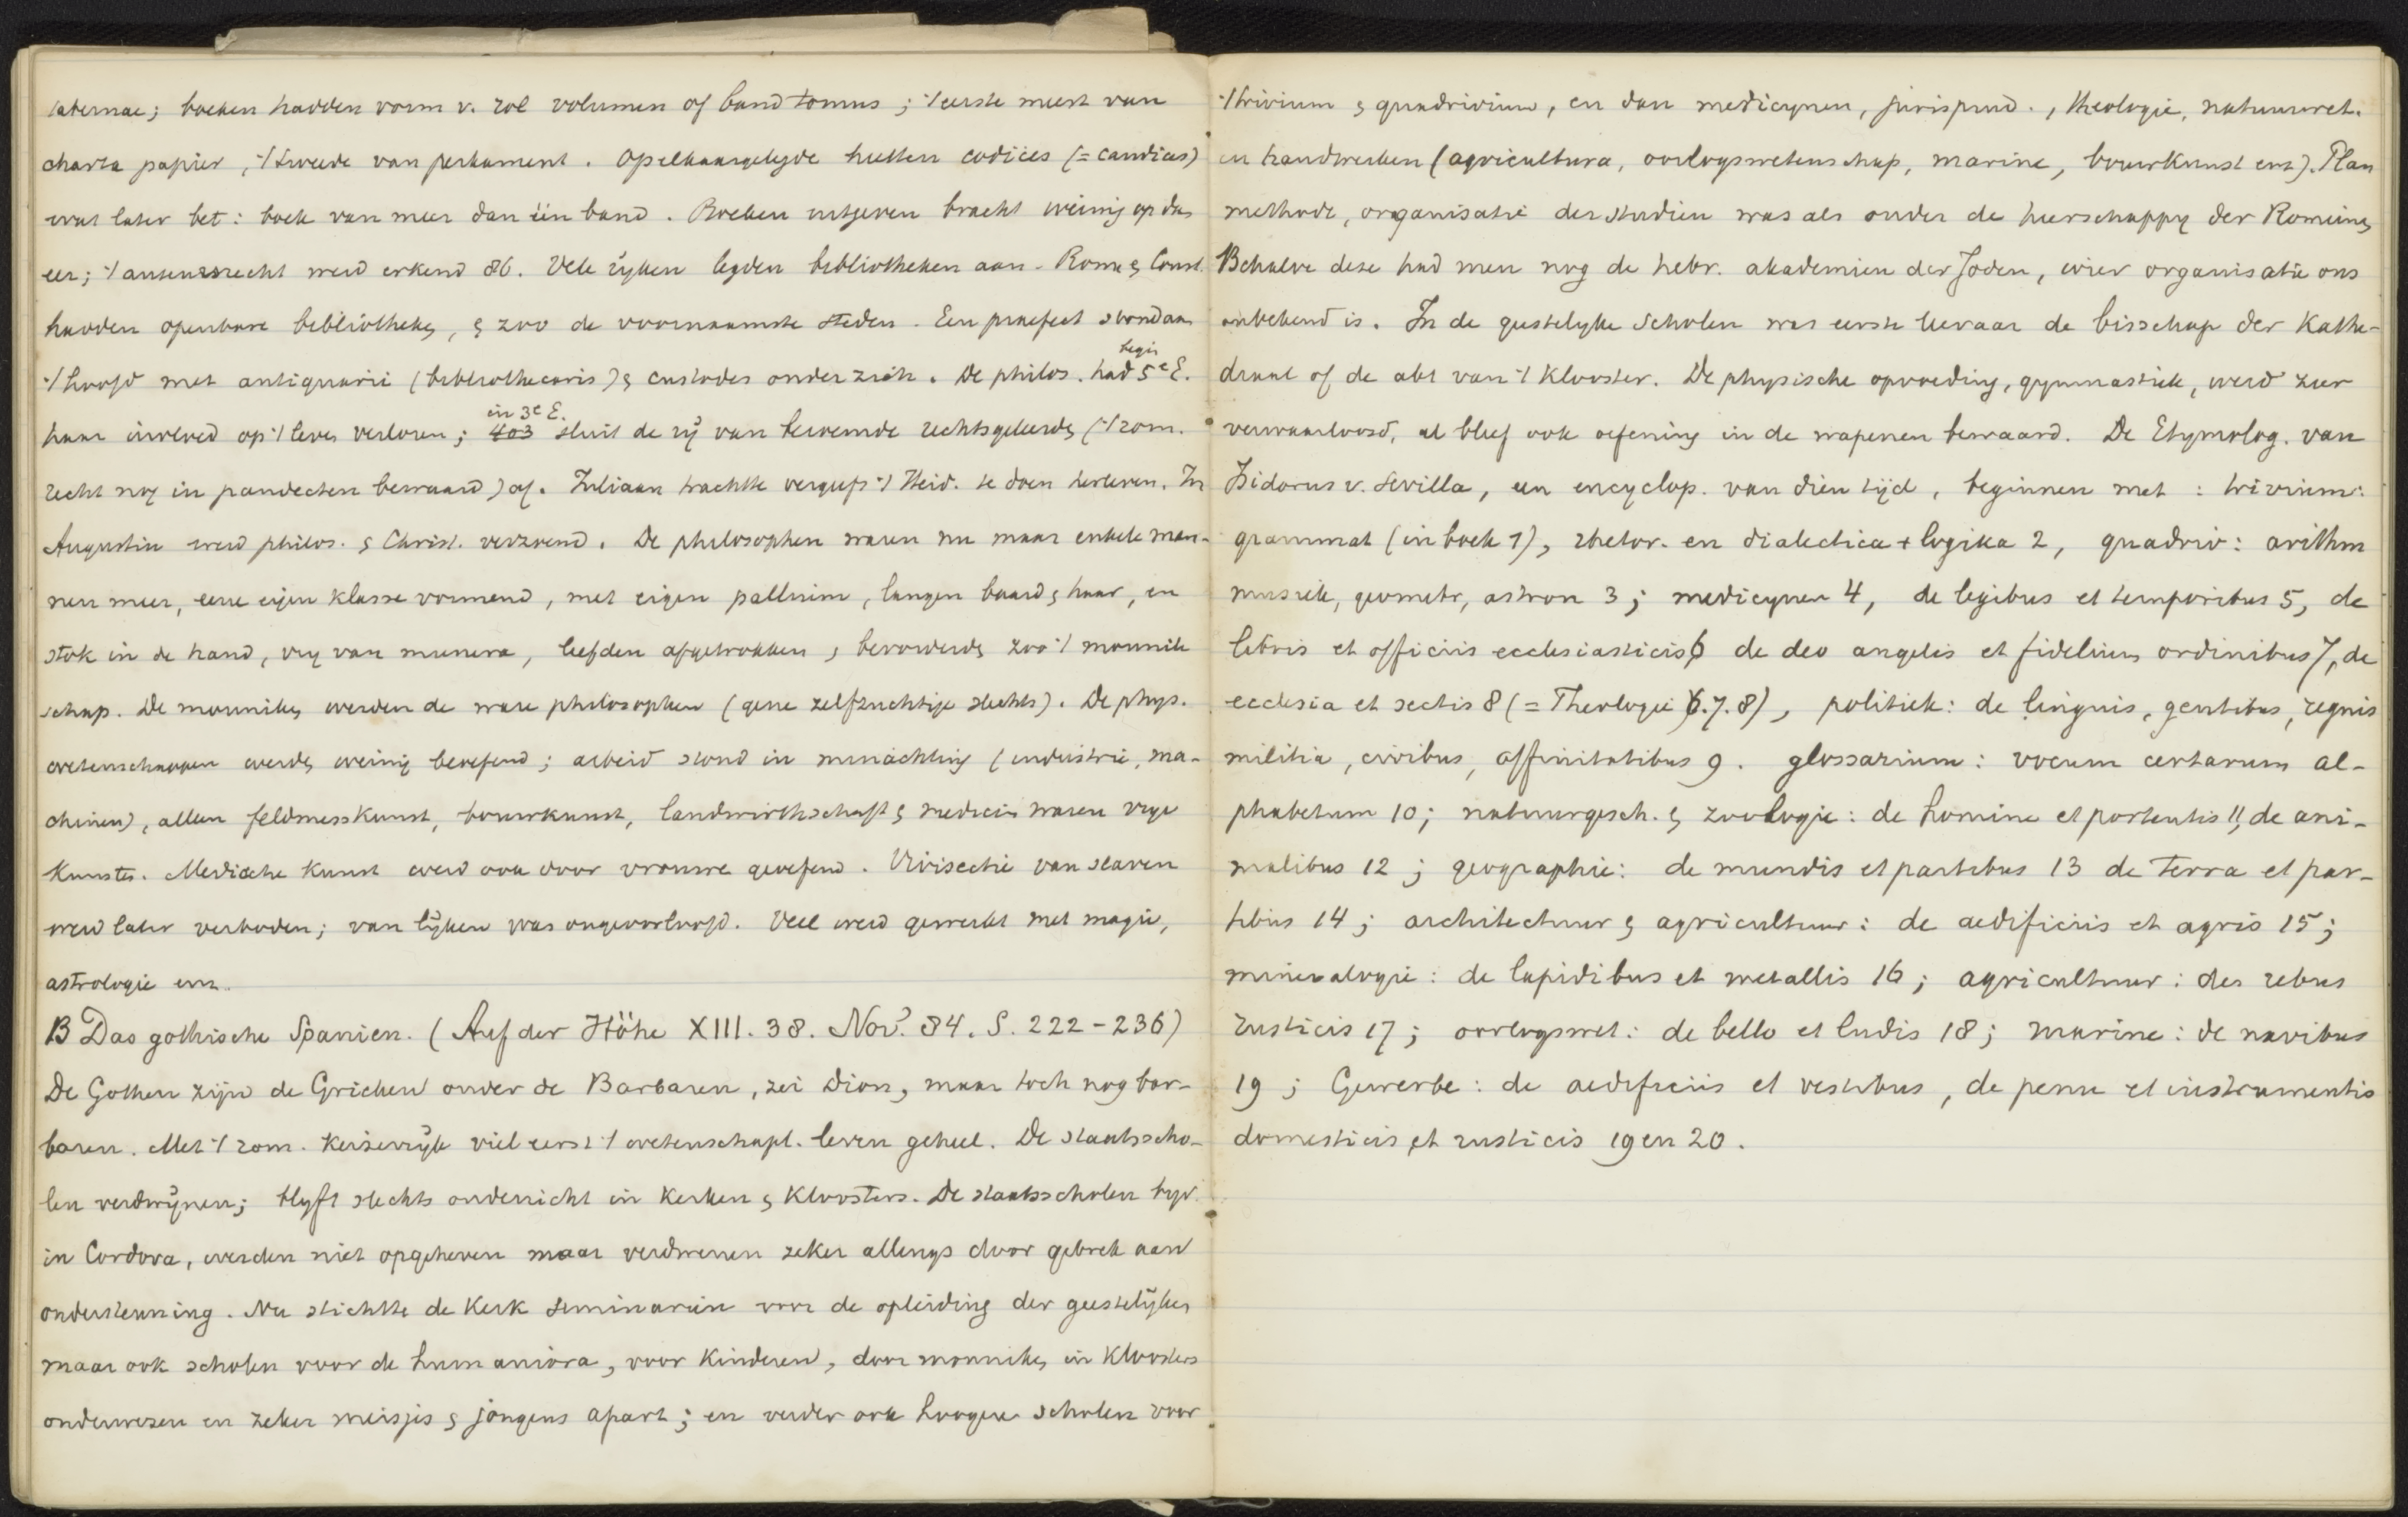 tabernae; boeken hadden vorm v. rol volumen of band tomus; 't eerste meest van
charta papier, 't tweede van perkament. Opelkaargelegde heetten codices (= caudices)
wat later bet: boek van meer dan één band. Boeken uitgeven bracht weinig op dan
eer; 't auteursrecht werd erkend 86. Vele rijken legden bibliotheken aan. Rome & Const.
hadden openbare bibliotheken, & zoo de voornaamste steden. Een praefect stond aan
't hoofd met antiquarii (bibliothecaris) & custodes onder zich. De philos. had begin 5e E.
haar invloed op 't leven verloren; in 3e E. 403 sluit de rij van beroemde rechtsgeleerden ('t rom.
recht nog in pandecten bewaard) af. Juliaan trachtte vergeefs 't Heid. te doen herleven. In
Augustin werd philos. & Christ. verzoend. De philosophen waren nu maar enkele man-
nen meer, eene eigen klasse vormend, met eigen pallium, langen baard & haar, en
stok in de hand, vrij van munera, leefden afgetrokken & bevorderden zoo 't monnik
schap. De monniken werden de ware philosophen (gene zelfzuchtige slechts). De phys.
wetenschappen werden weinig beoefend; arbeid stond in minachting (industrie, ma-
chinen), alleen feldmesskunst, bouwkunst, landwirthschaft & medicin waren vrije
kunsten. Medische kunst werd ook door vrouwen geoefend. Vivisectie van slaven
werd later verboden; van lijken was ongeoorloofd. Veel werd gewerkt met magie,
astrologie enz.
B Das gothische Spanien. (Auf der Höhe XIII. 38. Nov. 84. S. 222-236)
De Gothen zijn de Grieken onder de Barbaren, zei Dion, maar toch nog bar-
baren. Met 't rom. keizerrijk viel eerst 't wetenschapl. leven geheel. De staatsscho-
len verdwijnen; blijft slechts onderricht in kerken & kloosters. De staatsscholen bijv.
in Cordova, werden niet opgeheven maar verdwenen zeker allengs door gebrek aan
ondersteuning. Nu stichtte de Kerk seminarien voor de opleiding der geestelijken
maar ook scholen voor de humaniora, voor kinderen, door monniken in kloosters
onderwezen en zeker meisjes & jongens apart; en verder ook hoogere scholen voor
't trivium & quadrivium, en dan medicynen, jurisprud., theologie, natuurwet.
en handwerken (agricultura, oorlogswetenschap, marine, bouwkunst enz). Plan
methode, organisatie der studien was als onder de heerschappy der Romeinen
Behalve deze had men nog de hebr. akademien der Joden, wier organisatie ons
onbekend is. In de geestelyke scholen was eerste leeraar de bisschop der Kathe-
draal of de abt van 't klooster. De physische opvoeding, gymnastiek, werd zeer
verwaarloosd, al bleef ook oefening in de wapenen bewaard. De Etymolog. van
Isidorus v. Sevilla, een encyclop. van dien tijd, beginnen met: trivium:
grammat (in boek 1), rhetor. en dialectica + logika 2, quadriv: arithm
muziek, geometr, astron 3; medicynen 4, de legibus et temporibus 5, de
libris et officiis ecclesiasticis 6 de deo angelis et fidelium ordinibus 7, de
ecclesia et sectis 8 (= Theologie 6.7.8), politiek: de linguis, gentibus, regnis
militia, civibus, affinitatibus 9. glossarium: vocum certarum al-
phabetum 10; natuurgesch. & zoologie: de homine et portentis 11, de ani-
malibus 12; geographie: de mundis et partibus 13 de terra et par-
tibus 14; architectuur & agricultuur: de aedificiis et agris 15;
mineralogie: de lapidibus et metallis 16; agricultuur: des rebus
rusticis 17; oorlogswet: de bello et ludis 18; marine: de navibus
19; Gewerbe: de aedificiis et vestibus, de penu et instrumentis
domesticis et rusticis 19 en 20.